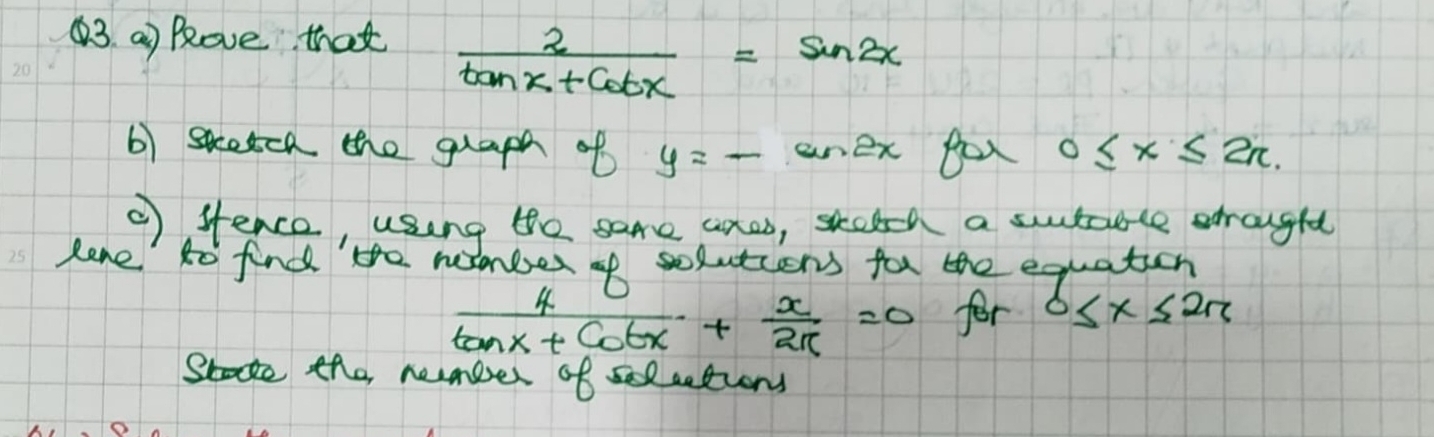 Q3. a) Prove that 2 / (tan x + Cot x) = Sin 2x
20
b) Sketch the graph of y = - sin 2x for 0 ≤ x ≤ 2π.
c) Hence, using the same axes, sketch a suitable straight
25 line to find the number of solutions for the equation
4 / (tan x + Cot x) + x / 2π = 0 for 0 ≤ x ≤ 2π
State the number of solutions